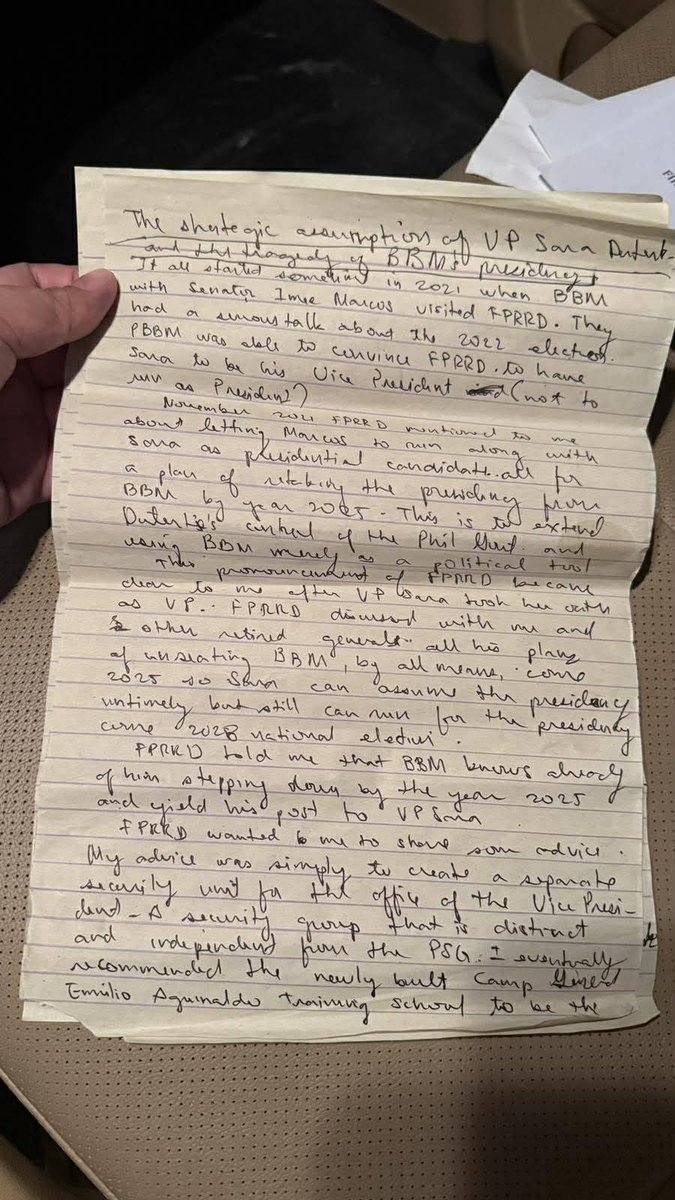 The strategic assumption of VP Sara Dutert-
and the tragedy of BBM's presidency
It all started sometime in 2021 when BBM
with Senator Imee Marcos visited FPRRD. They
had a serious talk about the 2022 election.
PBBM was able to convince FPRRD. to have
Sara to be his Vice President (not to
run as President)
November 2021 FPRRD mentioned to me
about letting Marcos to run along with
Sara as presidential candidate. all for
a plan of retaking the presidency from
BBM by year 2025. This is to extend
Duterte's control of the Phil Govt. and
using BBM merely as a political tool
This pronouncement of FPRRD became
clear to me after VP Sara took her oath
as VP. FPRRD discussed with me and
other retired generals all his plans
of unseating BBM, by all means, come
2025 so Sara can assume the presidency
untimely but still can run for the presidency
come 2028 national election.
FPRRD told me that BBM knows already
of him stepping down by the year 2025
and yield his post to VP Sara
FPRRD wanted me to share some advice.
My advice was simply to create a separate
security unit for the office of the Vice Presi-
dent - A security group that is distinct
and independent from the PSG. I eventually
recommended the newly built Camp
Emilio Aguinaldo training school to be the
FI